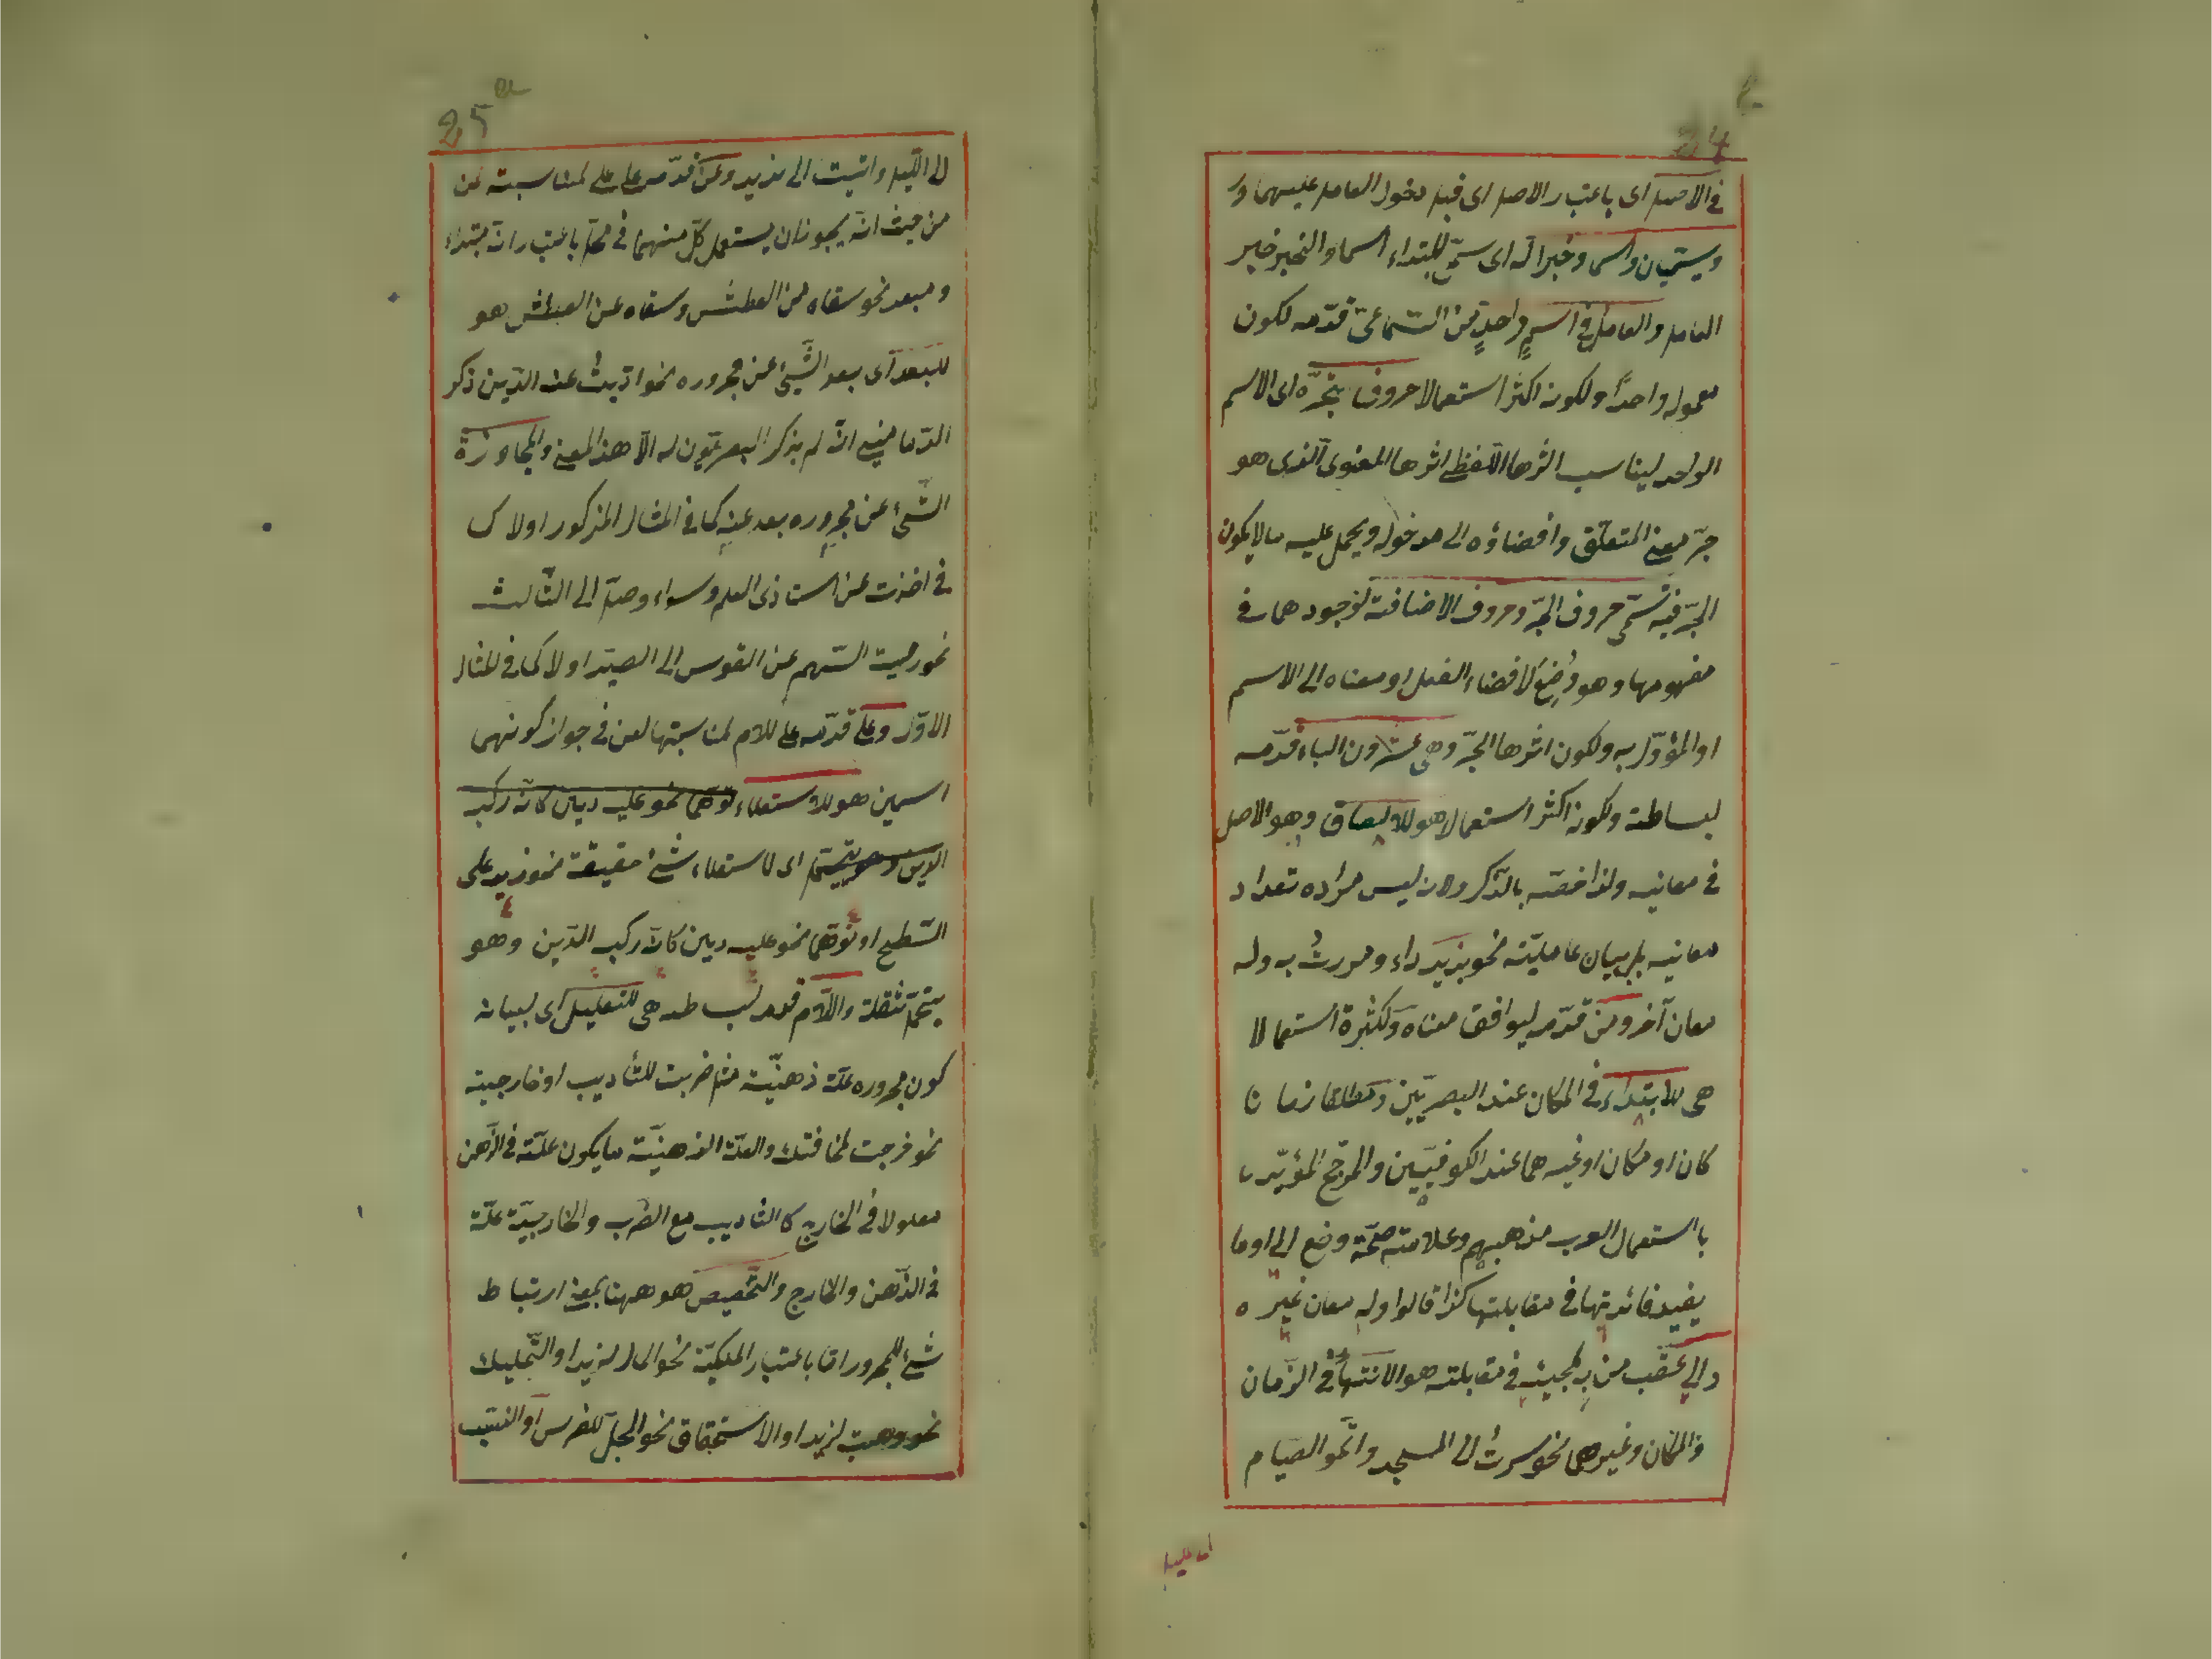 24
في الاصل اى باعتبار الاصل اى قبل دخول العامل عليهما و
ويسميان اسما وخبرا له اى سمى المبتداء اسما والخبر خبر
العامل والعامل في اسم واحد من السماعى قدمه لكون
معموله واحدا ولكونه اكثر استعمالا حروف تجره اى الاسم
الواحد ليناسب اثرها اللفظي اثرها المعنوى الذى هو
جر معنى المتعلق وافضاؤه الى مدخوله ويحمل عليه ما لا يكون
الجر فيه تسمى حروف الجر وحروف الاضافة لوجودهما في
مفهومها وهو وُضِعَ لافضاء الفعل او معناه الى الاسم
او المؤول به ولكون اثرها الجر وهى عشرون الباء قدمه
لبساطته ولكونه اكثر استعمالا هو للالصاق وهو الاصل
في معانيه ولذا خصه بالذكر ولانه ليس مراده تعداد
معانيه بل بيان عامليته نحو بزيد داء ومررتُ به وله
معان آخر ومن قدمه ليوافق معناه ولكثرة استعمالا
هى للابتداء في المكان عند البصريين ومطلقا زمانا
كان او مكان او غيرهما عند الكوفيين والمرجح المؤيد
باستعمال العرب مذهبهم وعلامته صحة وضع الى او ما
يفيد فائدتها في مقابلتها كذا قالوا وله معان غيره
والى عقب من به لمجيئه في مقابلته هو الانتهاء في الزمان
والمكان وغيرهما نحو سرتُ الى المسجد واتموا الصيام
25
الى الليل واتيت الى زيد وعن قدمه على على لمناسبته لمن
من حيث انه يجوز ان يستعمل كل منهما في محل باعتبار انه مبتداء
ومبعد نحو سقاه من العطش وسقاه عن العطش هو
للبعد اى بعد الشيئ عن مجروره نحو اديتُ عنه الدين ذكر
الدمامينى انه لم يذكر البصريون له الا هذا المعنى والمجاوزة
الشئ عن مجروره بعد عنه كما في المثال المذكور او لا ك
في اخذت عن استاذى العلم وسواء وصل الى الثالث
نحو رميت السهم عن القوس الى الصيد او لا كما في المثال
الاول وعلى قدمه على اللام لمناسبتها لعن في جواز كونهما
اسمين هو للاستعلاء توهما نحو عليه دين كانه ركب
الدين وهو يتحمل اى لاستعلاء شئ حقيقة نحو زيد على
السطح او توهما نحو عليه دين كانه ركب الدين وهو
يتحمل ثقله واللام قدمه لبساطته هى للتعليل اى لبيان
كون مجروره علة ذهنية مثل ضربت للتأديب او خارجية
نحو خرجت لمخافتك والعلة الذهنية ما يكون علة في الذهن
معلولا في الخارج كالتأديب مع الضرب والخارجية علة
في الذهن والخارج والتخصيص هو ههنا بمعنى ارتباط
شئ للمجرور اما باعتبار الملكية نحو المال لزيد او التمليك
نحو وهبت لزيد او الاستحقاق نحو الجل للفرس او النسب